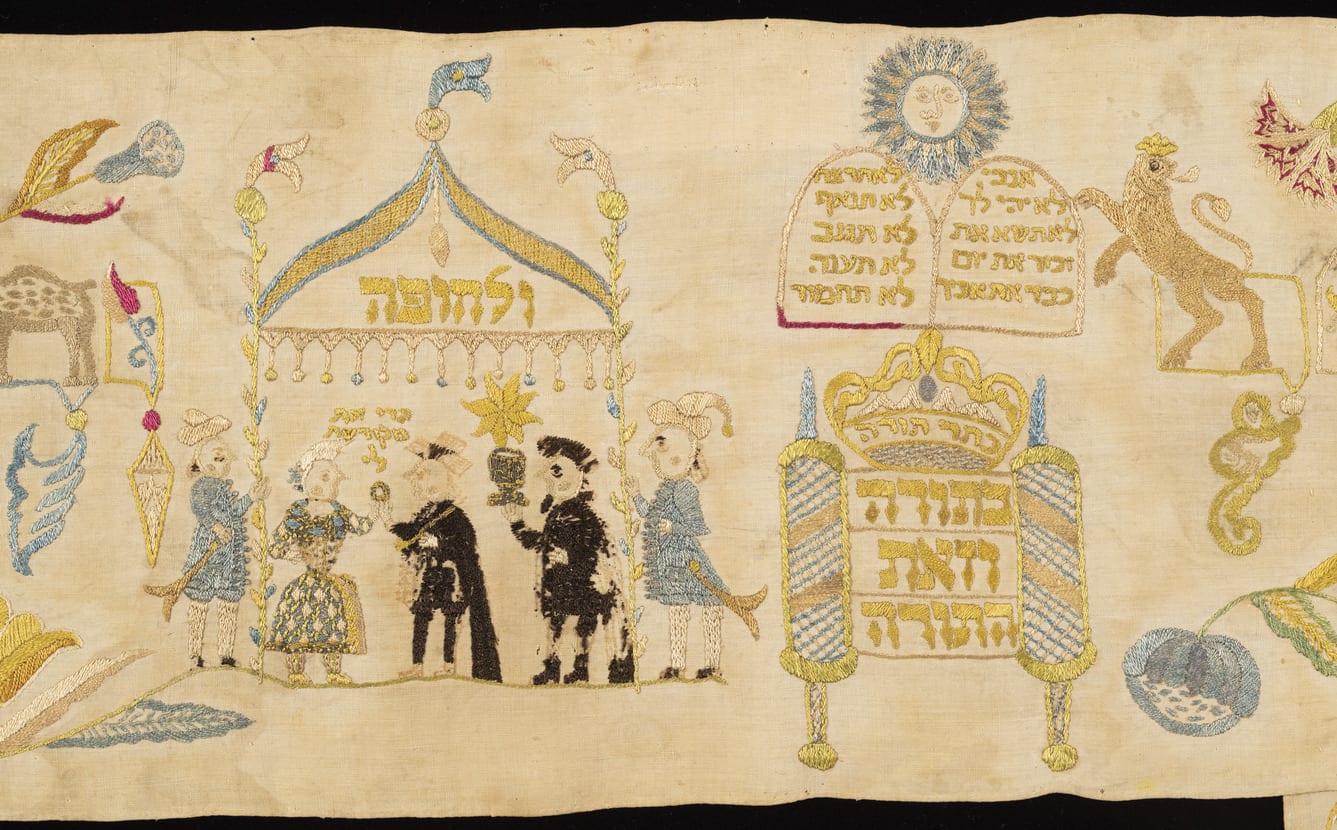 אנכי
לא יהי לך
לא תשא את
זכור את יום
כבד את אביך
לא תרצח
לא תנאף
לא תגנב
לא תענה
לא תחמוד
כתר תורה
בתורה
וזאת
התורה
ולחופה
הרי את
מקודשת
לי